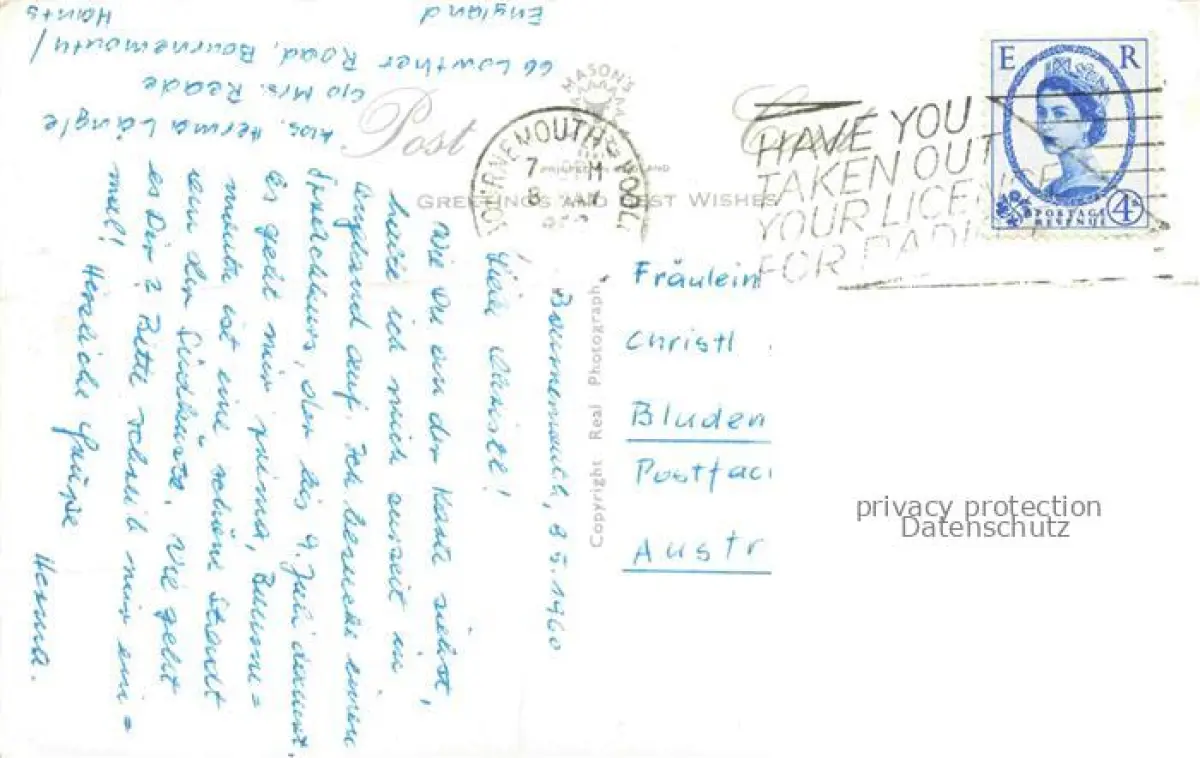 Post Card
MASON'S
PRINTED IN ENGLAND
GREETINGS AND BEST WISHES
Copyright Real Photograph
BOURNEMOUTH & POOLE
HAVE YOU
TAKEN OUT
YOUR LICENCE
FOR RADIO
E R
POSTAGE
REVENUE
4D
Bournemouth, 8.5.1960
Liebe Christl!
Wie Du an der Karte siehst,
halte ich mich zurzeit in
England auf. Ich besuche einen
Sprachkurs, der bis 4. Juli dauert.
Es geht mir prima, Bourne=
mouth ist eine schöne Stadt
an der Südküste. Wie geht
es Dir? Bitte schreib mir ein=
mal! Herzliche Grüsse
Herma.
Abs. Herma Längle
c/o Mrs. Reade
66 Lowther Road, Bournemouth/
Hants
England
Fräulein
Christl
Bluden
Postfac
Austr
privacy protection
Datenschutz